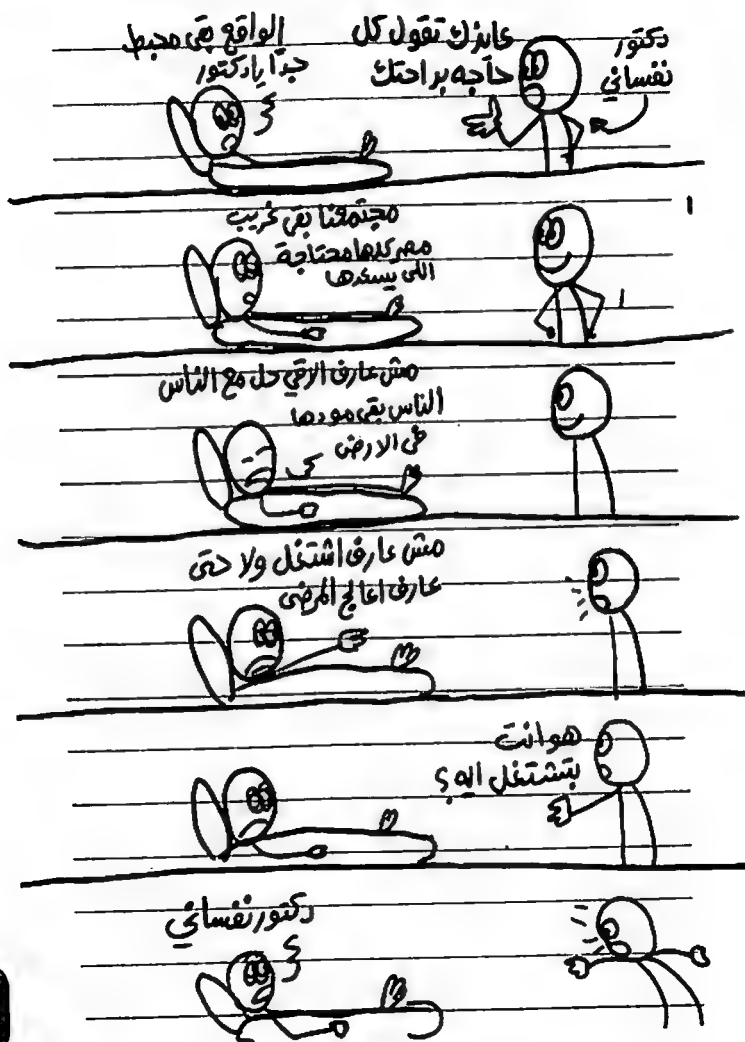 دكتور
نفساني
عايزك تقول كل
حاجه براحتك
الواقع بقى محبط
جدًا يا دكتور
مجتمعنا بقى غريب
مصر كلها محتاجة
اللى يسعدها
مش عارف الاقي حل مع الناس
الناس بقى مودها
فى الارض
مش عارف اشتغل ولا حتى
عارف اعالج المرضى
هو انت
بتشتغل ايه؟
دكتور نفساني